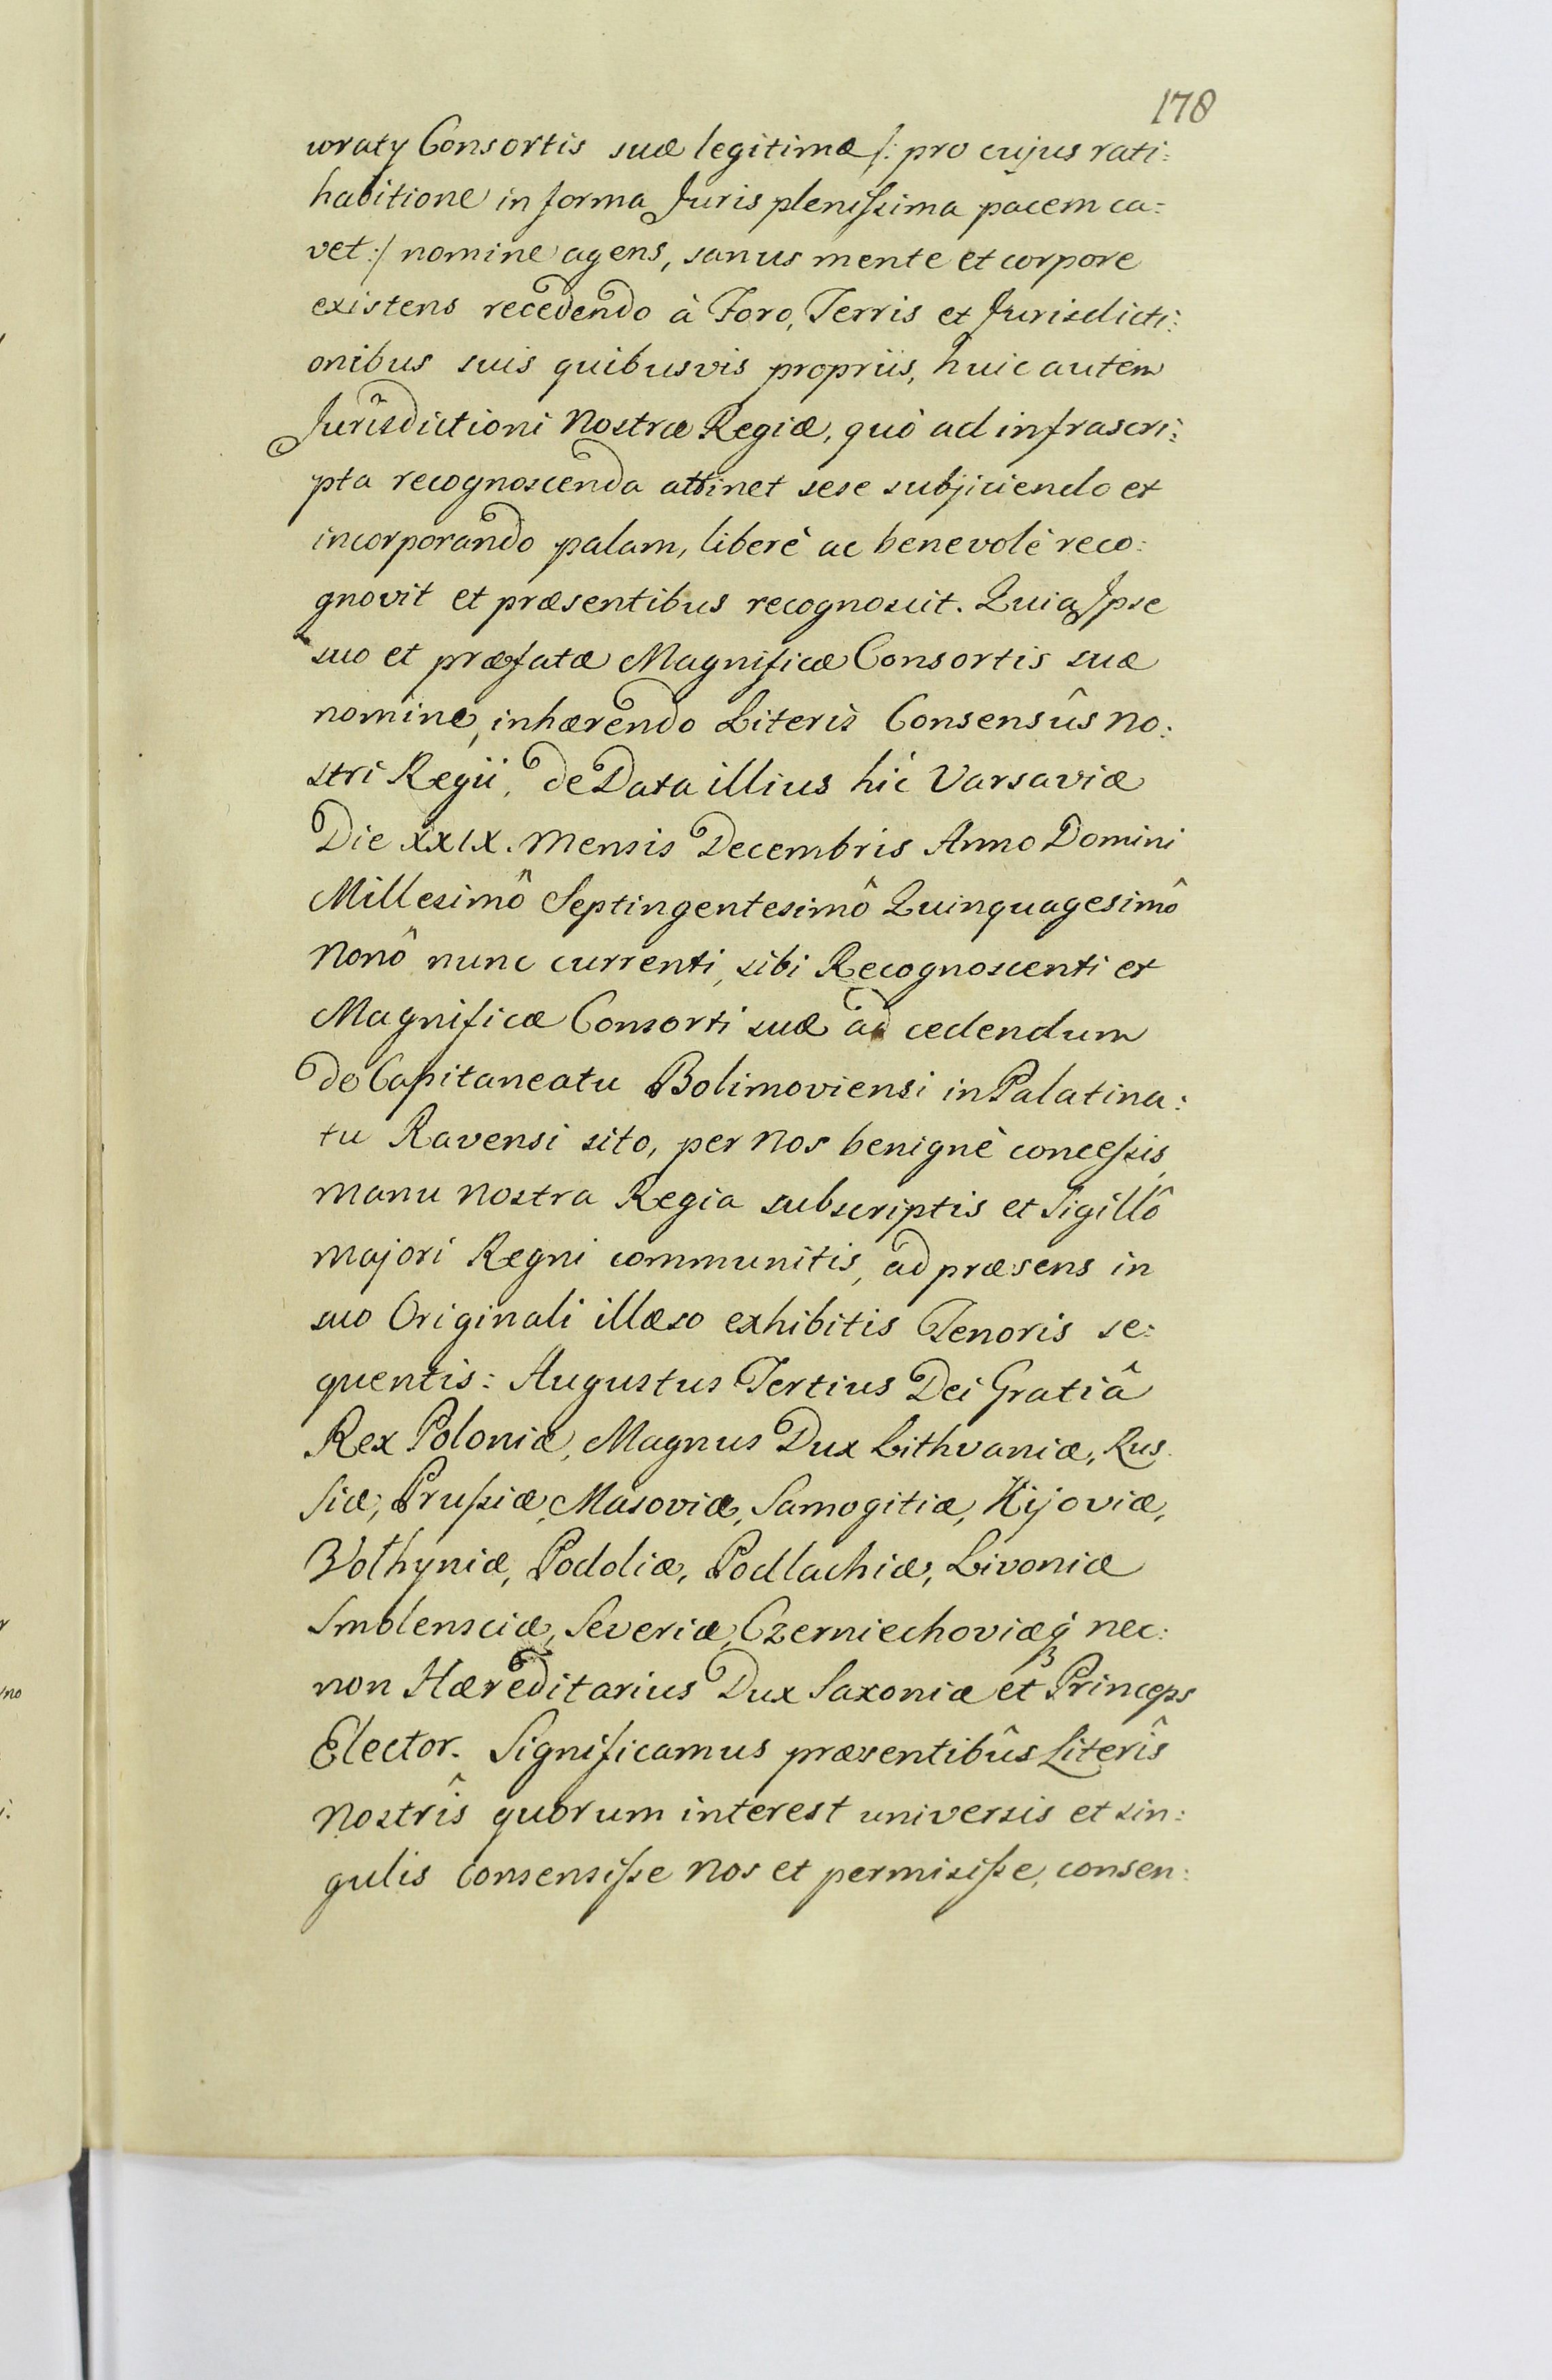 178
woraty Consortis suæ legitimæ /: pro cujus rati:
habitione in forma Juris plenissima pacem ca:
vet :/ nomine agens, sanus mente et corpore
existens recedendo à Foro, Terris et Jurisdicti:
onibus suis quibusvis propriis, huic autem
Jurisdictioni Nostræ Regiæ, quò ad infrascri:
pta recognoscenda attinet sese subjiciendo et
incorporando palam, liberè ac benevolè reco:
gnovit et præsentibus recognoscit. Quia Ipse
suo et præfatæ Magnificæ Consortis suæ
nomine, inhærendo Literis Consensûs No:
stri Regii, de Data illius hic Varsaviæ
Die XXIX. Mensis Decembris Anno Domini
Millesimô Septingentesimô Quinquagesimô
Nonô nunc currenti, sibi Recognoscenti et
Magnificæ Consorti suæ ad cedendum
de Capitaneatu Bolimoviensi in Palatina:
tu Ravensi sito, per Nos benignè concessis,
manu nostra Regia subscriptis et Sigillô
majori Regni communitis, ad præsens in
suo Originali illæso exhibitis Tenoris se:
quentis: Augustus Tertius Dei Gratiâ
Rex Poloniæ, Magnus Dux Lithvaniæ, Rus
siæ, Prussiæ, Masoviæ, Samogitiæ, Kijoviæ,
Volhyniæ, Podoliæ, Podlachiæ, Livoniæ
Smolensciæ, Severiæ, Czerniechoviæq3 nec:
non Hæreditarius Dux Saxoniæ et Princeps
Elector. Significamus præsentibûs Literîs
Nostrîs quorum interest universis et sin:
gulis consensisse Nos et permisisse, consen: